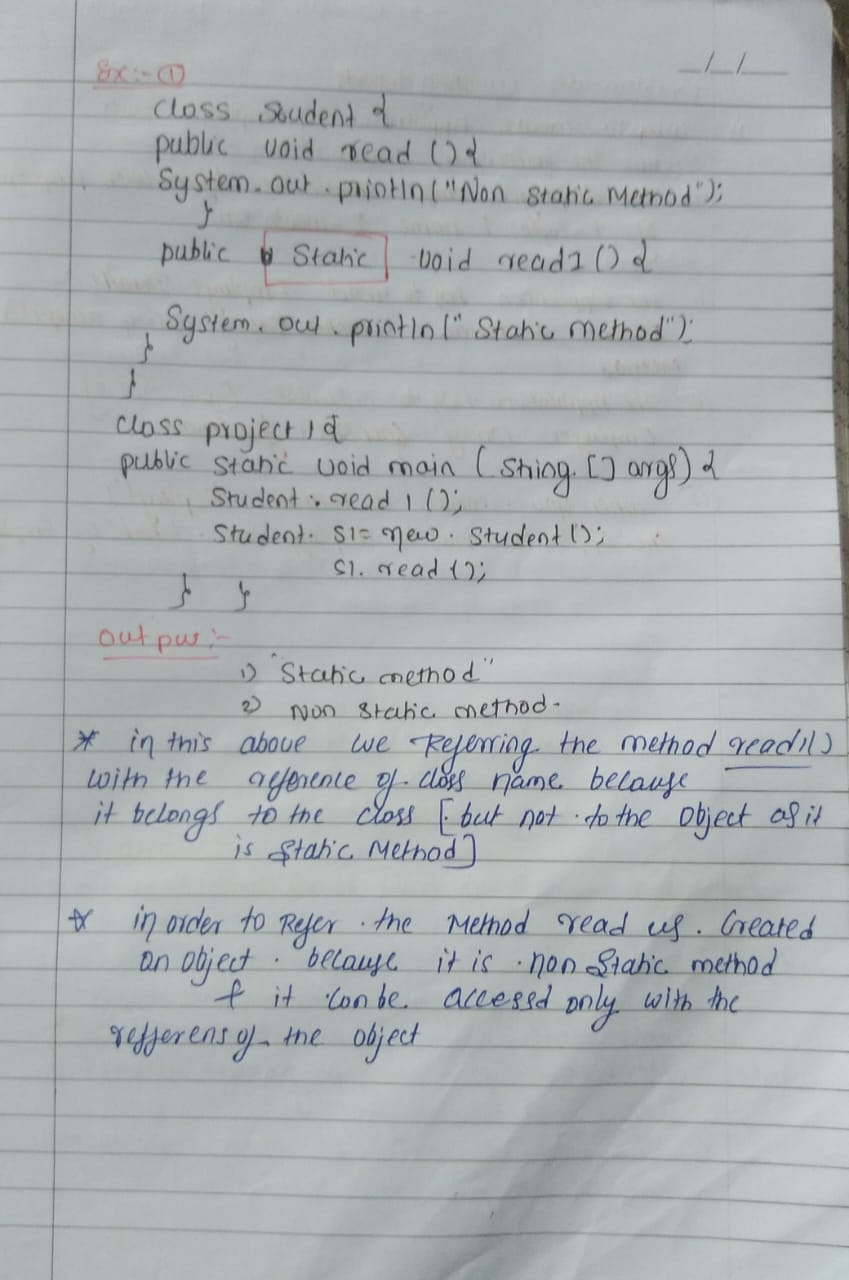 Ex:- ①
__/__/__
class Student {
public void read () {
System.out.println("Non Static Method");
}
public Static void read1 () {
System.out.println("Static method");
}
}
class project1 {
public static void main (String [] args) {
Student.read1();
Student. S1= new. Student();
S1. read ();
} }
Output:-
1) "Static method"
2) Non Static method.
* in this above we Referring the method read1()
with the reference of class name because
it belongs to the class [but not to the object as it
is Static Method]
* in order to Refer the Method read us. Created
an object. because it is non Static method
& it can be accessd only with the
refferens of the object